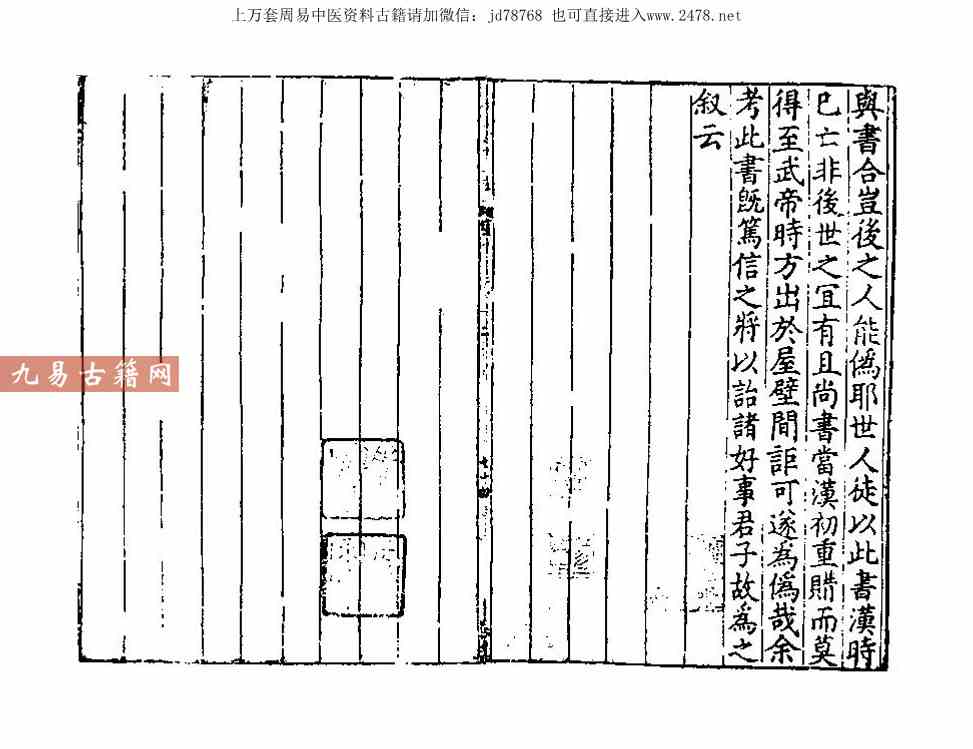 上万套周易中医资料古籍请加微信：jd78768 也可直接进入www.2478.net
與書合豈後之人能僞耶世人徒以此書漢時
已亡非後世之冝有且尚書當漢初重購而莫
得至武帝時方出於屋壁間詎可遂為僞哉余
考此書旣篤信之將以詒諸好事君子故為之
叙云
九易古籍网